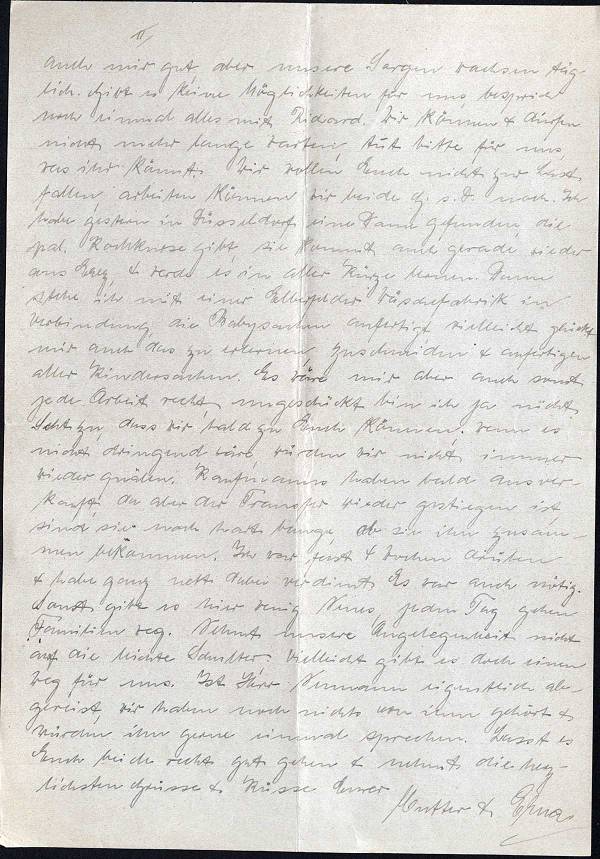 II,
auch mir gut, aber unsere Sorgen wachsen täg-
lich. Gibt es keine Möglichkeiten für uns, besprich
noch einmal alles mit Richard. Wir können & dürfen
nicht mehr lange warten, tut bitte für uns,
was ihr könnt. Wir wollen Euch nicht zur Last
fallen, arbeiten können wir beide G. s. D. noch. Ich
habe gestern in Düsseldorf eine Dame gefunden, die
pal. Kochkurse gibt, sie kommt auch gerade wieder
aus Erez & werde es in aller Kürze lernen. Dann
stehe ich mit einer Elberfelder Wäschefabrik in
Verbindung, die Babysachen anfertigt, vielleicht glückt
mir auch das zu erlernen, zuschneiden & anfertigen
aller Kindersachen. Es wäre mir aber auch sonst
jede Arbeit recht, ungeschickt bin ich ja nicht.
Seht zu, dass wir bald zu Euch können, wenn es
nicht dringend wäre, würden wir nicht immer
wieder quälen. Kaufmanns haben bald ausver-
kauft, da aber der Transfer wieder gestiegen ist,
sind sie noch bange, ob sie ihn zusam-
men bekommen. Ich war fast 4 Wochen drüben
& habe ganz nett dabei verdient. Es war auch nötig.
Sonst gibt es hier wenig Neues, jeden Tag gehen
Familien weg. Nehmt unsere Angelegenheit nicht
auf die leichte Schulter. Vielleicht gibt es doch einen
Weg für uns. Ist Herr Neumann eigentlich ab-
gereist, wir haben noch nichts von ihm gehört &
würden ihn gerne einmal sprechen. Lasst es
Euch beide recht gut gehen & nehmt die herz-
lichsten Grüsse & Küsse Eurer
Mutter & Erna